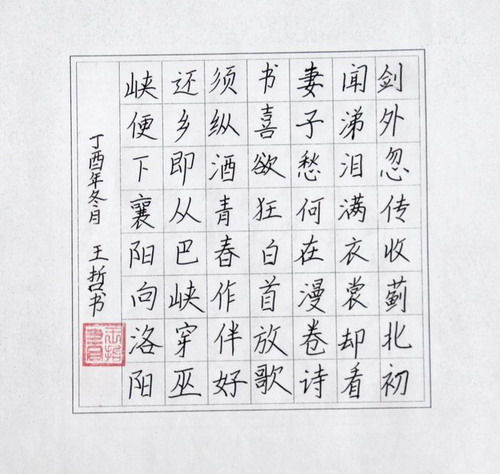 剑外忽传收蓟北初
闻涕泪满衣裳却看
妻子愁何在漫卷诗
书喜欲狂白首放歌
须纵酒青春作伴好
还乡即从巴峡穿巫
峡便下襄阳向洛阳
丁酉年冬月 王哲书